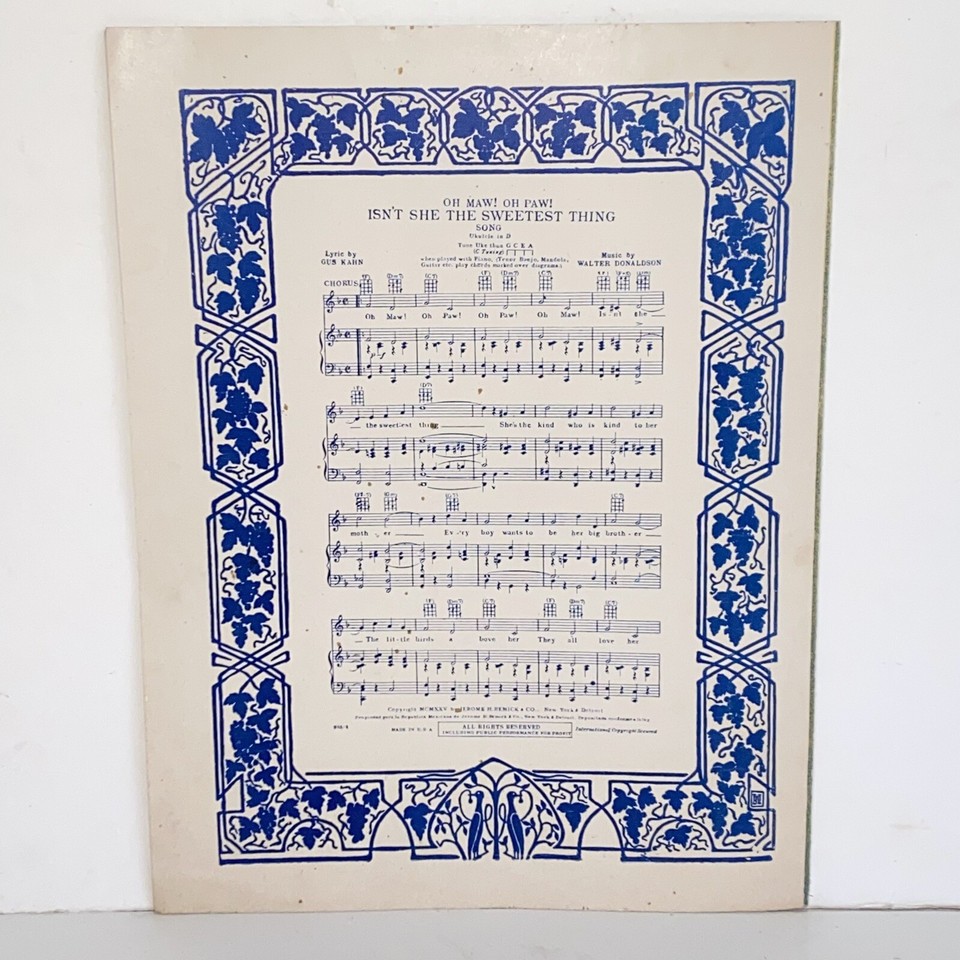 OH MAW! OH PAW!
ISN'T SHE THE SWEETEST THING
SONG
Ukulele in D
Tune Uke thus G C E A
(C Tuning)
Lyric by
GUS KAHN
when played with Piano, (Tenor Banjo, Mandola,
Guitar etc. play chords marked over diagrams.)
Music by
WALTER DONALDSON
CHORUS
Oh Maw! Oh Paw! Oh Paw! Oh Maw! Is-n't she
the sweetest thing She's the kind who is kind to her
moth - er Ev-'ry boy wants to be her big broth - er
The lit-tle birds a bove her They all love her
Copyright MCMXXV by JEROME H. REMICK & CO., New York & Detroit
Propiedad para la Republica Mexicana de Jerome H. Remick & Co., New York & Detroit.
MADE IN U.S.A
ALL RIGHTS RESERVED
INCLUDING PUBLIC PERFORMANCE FOR PROFIT
International Copyright Secured